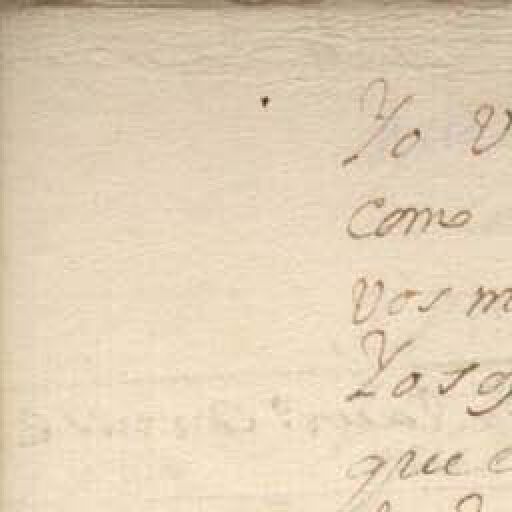 Yo V
como
vos m
Yo sog
que e